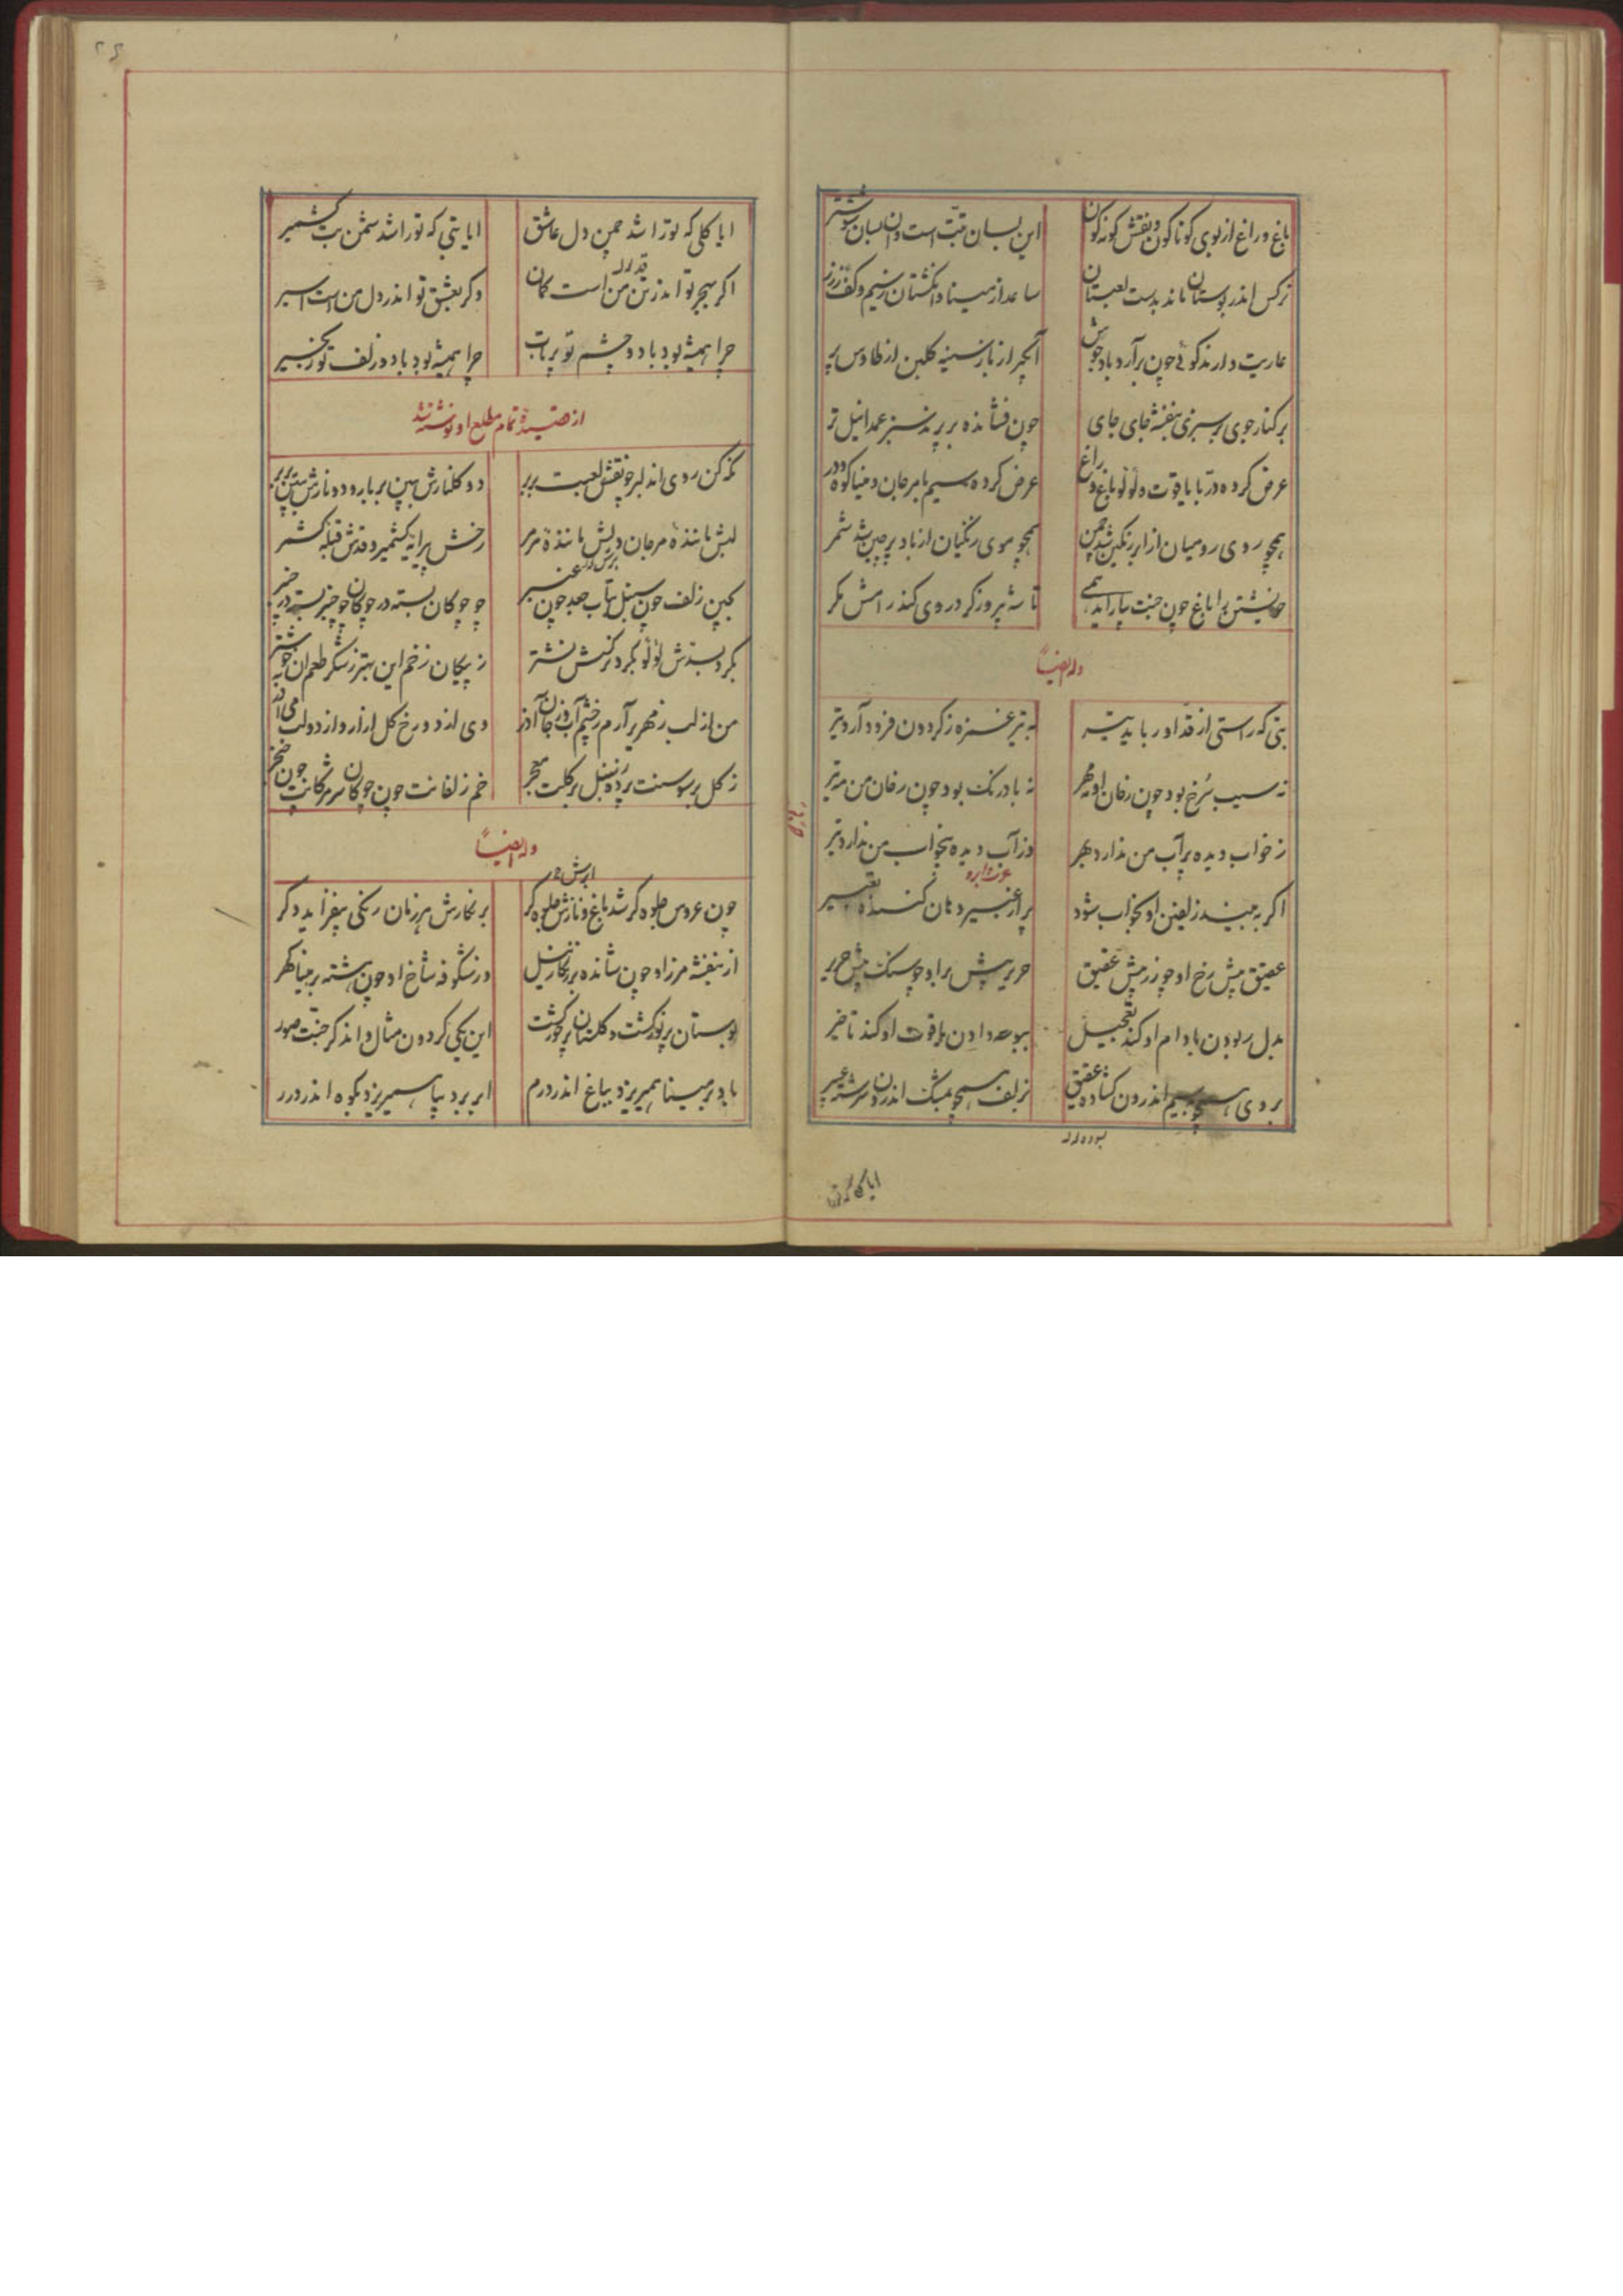 باغ و راغ از بوی کوناکون و نقش کونه کون
این بسان تبت است و ان بسان شوشتر
نرکس اندر بوستان ماند بدست لعبتان
ساعد از مینا و انکشتان ز سیم و کف ز زر
عاریت دارند کوئی چون برآرد باد جوش
آبگیر از باز سینه کلبن از طاوس پر
بر کنار جوی بر سبزی بنفشه جای جای
چون فشانده بر پرند سبز عمدا نیل تر
عرض کرده در با یاقوت و لولو باغ و راغ
عرض کرده سیم با مرجان و مینا کوه و در
همچو روی رومیان از ابر رنکین شد چمن
همچو موی زنکیان از باد پرچین شد شمر
خویشتن را باغ چون جنت بیاراید همی
تا شه پیروزکر در وی کند رامش مکر
وله ایضاً
بتی که راستی از قد او رباید تیر
به تیر غمزه ز کردون فرود آرد تیر
نه سیب سرخ بود چون رخان او مهر
نه بادرنک بود چون رخان من بر تیر
ز خواب دیده پر آب من ندارد بهر
وز آب دیده بیخواب من ندارد تیر
اکر به بیند زلفین او بخواب شود
پر از عبیر دهان کننده تعبیر
عقیق پیش رخ او چو زر پیش عقیق
حریر پیش بر او چو سنک پیش حریر
بدل ربودن بادام او کند تعجیل
ببوسه دادن یاقوت او کند تاخیر
بروی همچو بسیم اندرون کشاده عقیق
بزلف همچو بمشک اندرون سرشته عبیر
ایا کلی که تو را
ایا کلی که تو را شد چمن دل عاشق
ایا بتی که تو را شد شمن بت کشمیر
اکر بهجر تو اندر تن من است کمان
وکر بعشق تو اندر دل من است اسیر
چرا همیشه بود با دو چشم تو پرتاب
چرا همیشه بود با دو زلف تو زنجیر
از قصیده تمام مطلع او نوشته شد
نکه کن روی ان دلبر چو نقش لعبت بربر
دو کلنارش ببین بر بار و دو نارش ببین بر بر
لبش مانندهٔ مرجان و لیش مانندهٔ مرمر
رخش پیرایه کشمیر و قدش قبله کشمر
کجین زلف چون سنبل بتاب جعد چون عنبر
چو چوکان بسته در چوکان چو چنبر بسته در چنبر
بکرد بسدش لولو بکرد نرکسش نشتر
ز پیکان زخم این بهتر ز شکر طعم ان خوشتر
من از لب زمهریر آرم ز چشم آب و ز جان آذر
ز کل بر سوسنت پرده ز سنبل بر کلت معجر
خم زلفانت چون چوکان سر مژکانت چون خنجر
وله ایضاً
چون عروس جلوه کر شد باغ و نازش جلوه کر
بر نکارش هر زمان رنکی بیفزاید دکر
از بنفشه مرز او چون شانده بر زنکار نیل
وز شکوفه شاخ او چون هشته بر مینا کهر
بوستان پر نور کشت و کلستان پر حور کشت
این یکی کردون مثال و ان دکر جنت صور
باد بر مینا همی ریزد بباغ اندر درم
ابر بر دیبا همی ریزد بکوه اندر درر